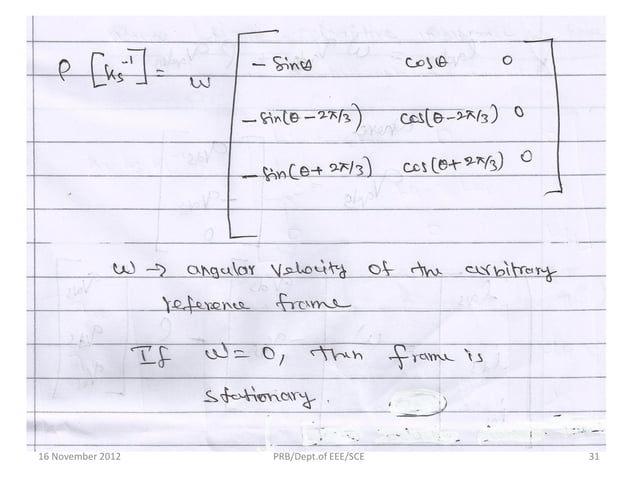 P [Ks⁻¹] = ω [ - sinθ cosθ 0
- sin(θ - 2π/3) cos(θ - 2π/3) 0
- sin(θ + 2π/3) cos(θ + 2π/3) 0 ]
ω → angular velocity of the arbitrary
reference frame
If ω = 0, then frame is
stationary.
16 November 2012 PRB/Dept.of EEE/SCE 31